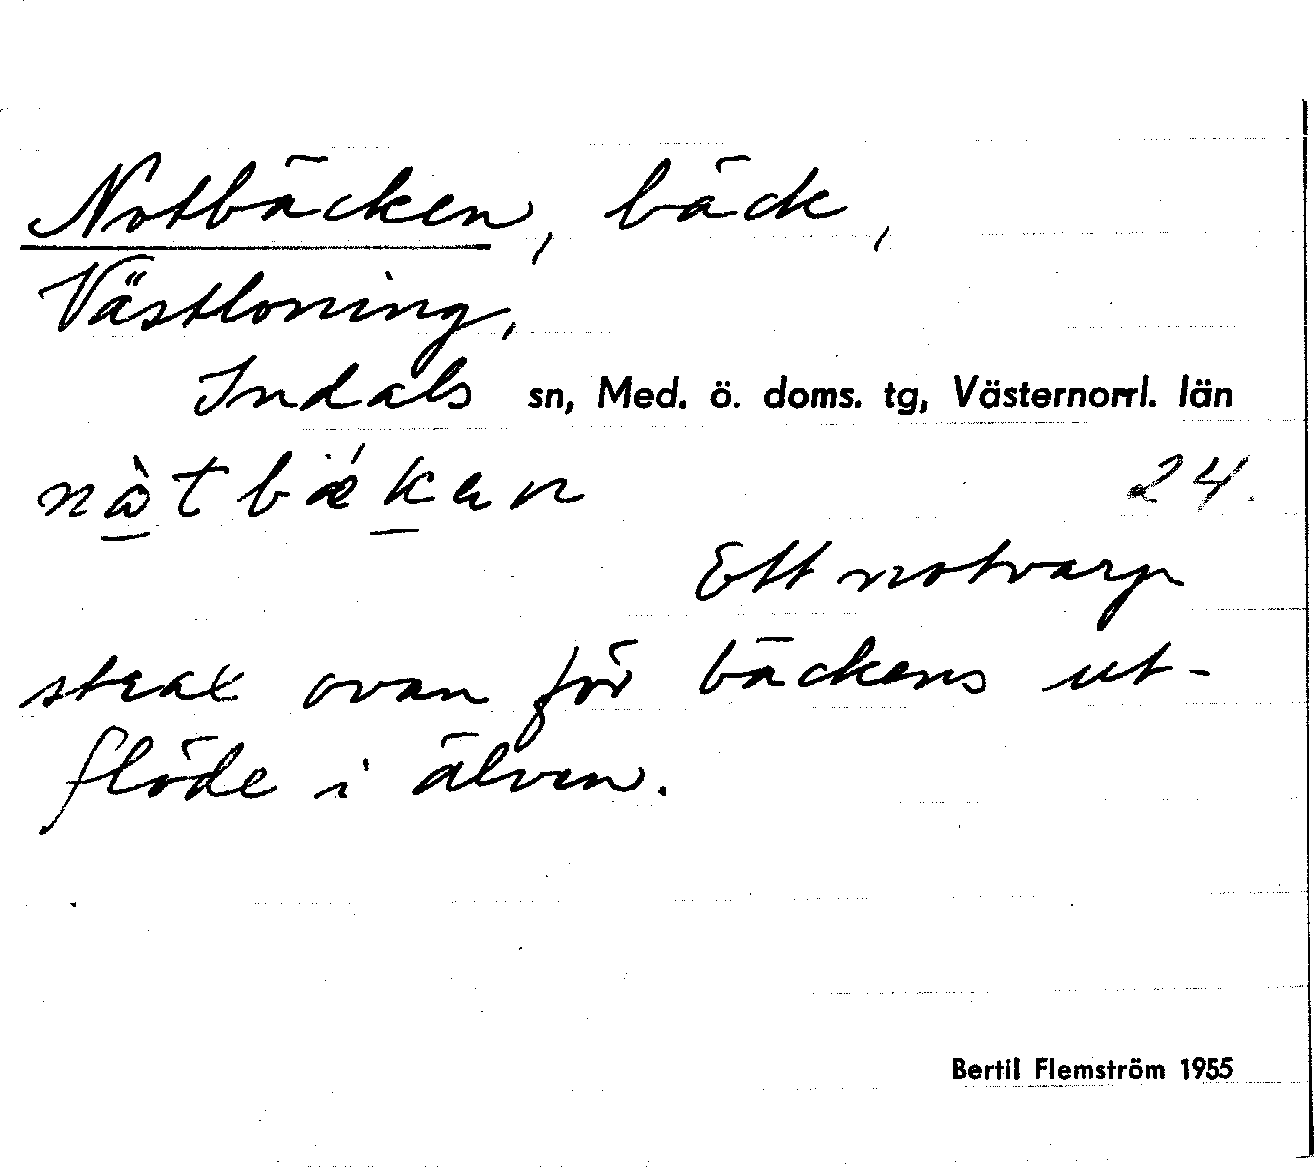 Notbäcken, bäck,
Västloning,
Indals sn, Med. ö. doms. tg, Västernorrl. län
nòtbǽkan 24.
Ett notvarp
strax ovan för bäckens ut-
flöde i älven.
Bertil Flemström 1955